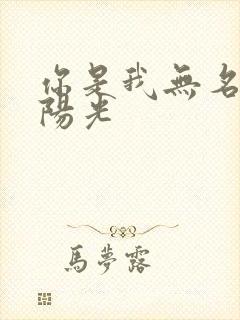 你是我無名
陽光
馬夢露